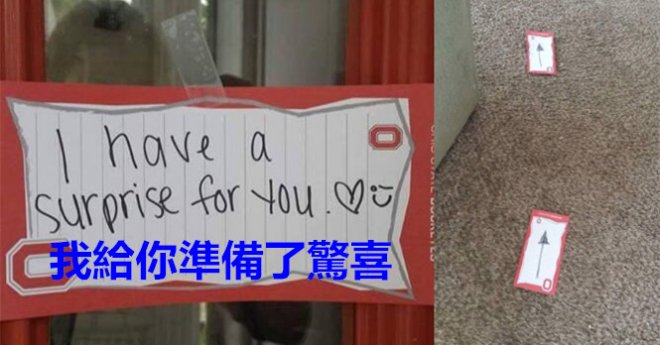 I have a
surprise for you. ♡ :)
我給你準備了驚喜
OHIO STATE BUCKEYES